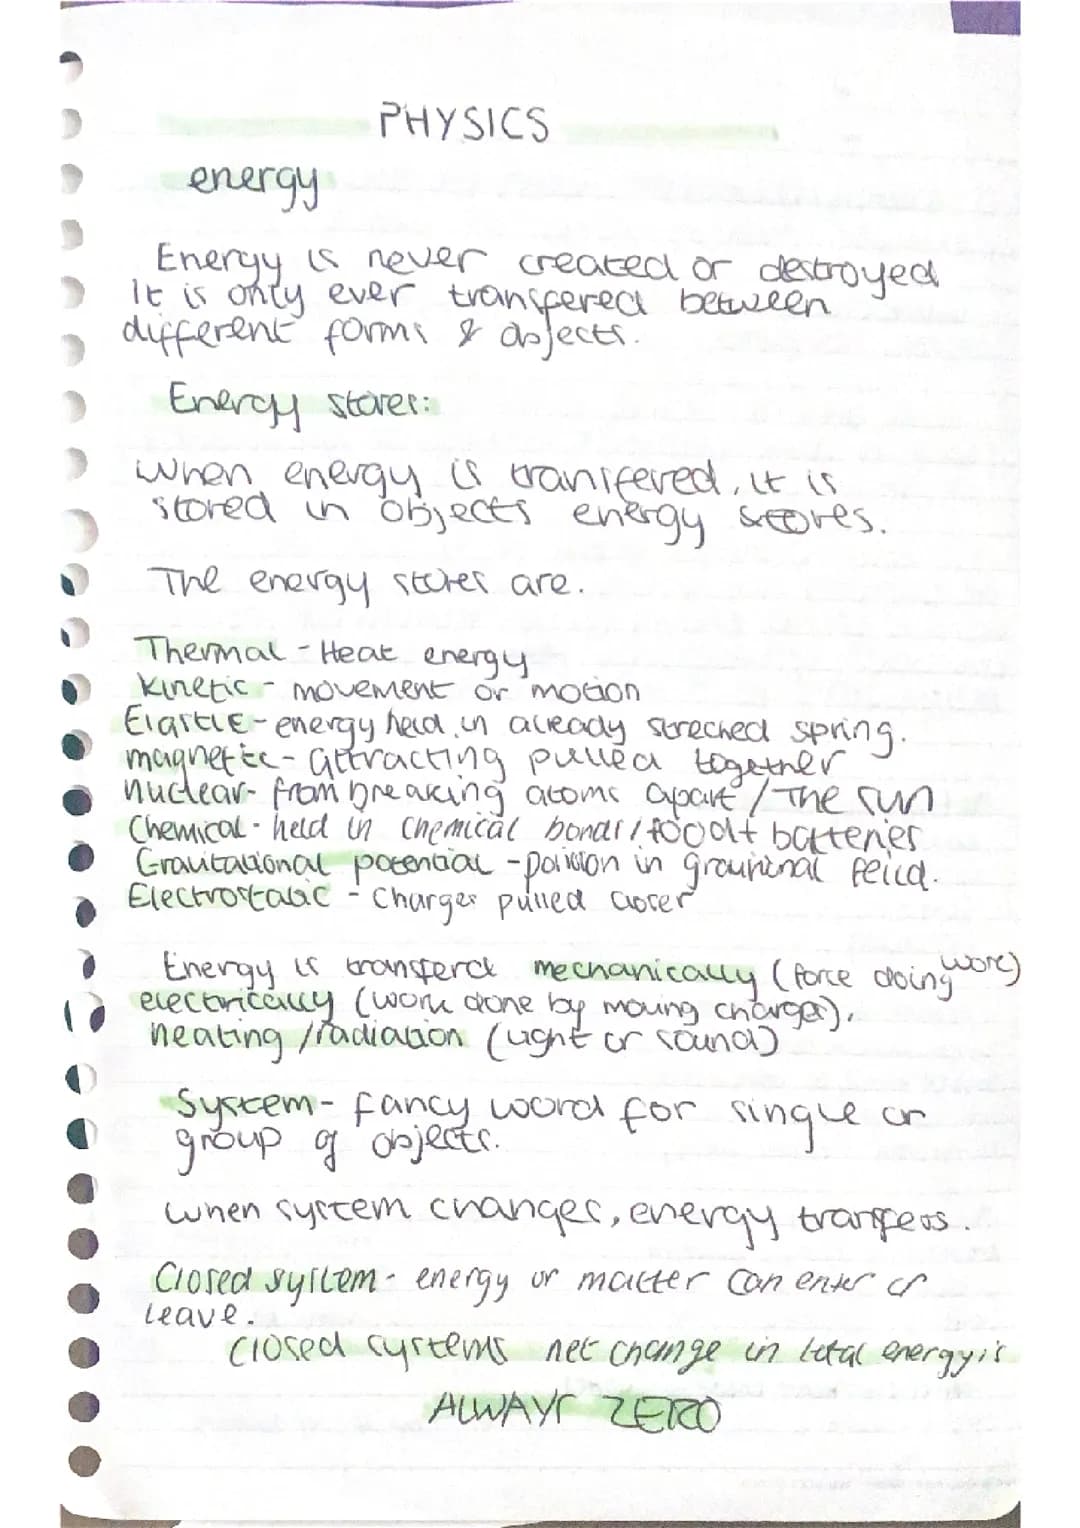 PHYSICS
energy
Energy is never created or destroyed
It is only ever transfered between
different forms & objects.
Energy stores:
when energy is transfered, it is
stored in objects energy stores.
The energy stores are.
Thermal - Heat energy
Kinetic - movement or motion
Elastic - energy held in already streched spring.
magnetic - attracting pulled together
nuclear - from breaking atoms apart / The sun
Chemical - held in chemical bonds / food + batteries
Gravitational potential - position in feild.
Electrostatic - Charges pulled closer
Energy is transferd mechanically (force doing work)
electrically (work done by moving charges),
heating / radiation (light or sound)
System - fancy word for single or
group of objects.
when system changes, energy transfers.
Closed system - energy or matter can enter or
leave.
Closed systems net change in total energy is
ALWAYS ZERO